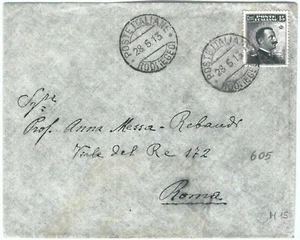 POSTE ITALIANE
28.5.13
RODI (EGEO)
POSTE ITALIANE
28.5.13
RODI (EGEO)
POSTE ITALIANE
15
Prof. Anna Messa-Rebaudi
Viale del Re 172
Roma
605